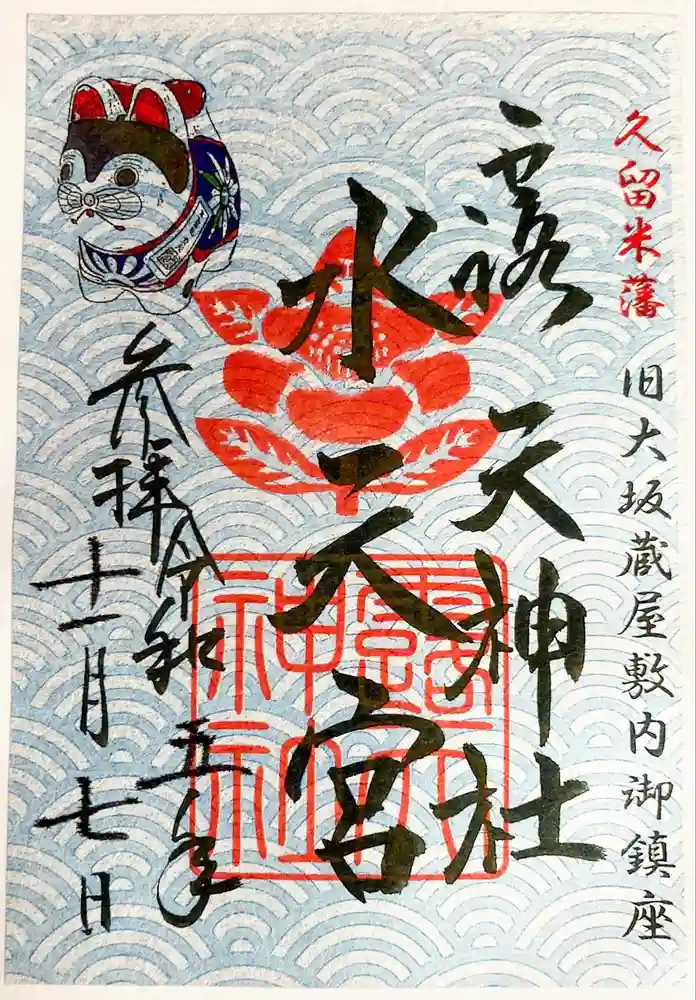 久留米藩 旧大坂蔵屋敷内御鎮座
露天神社
水天宮
参拝令和五年
十一月七日
露天神社